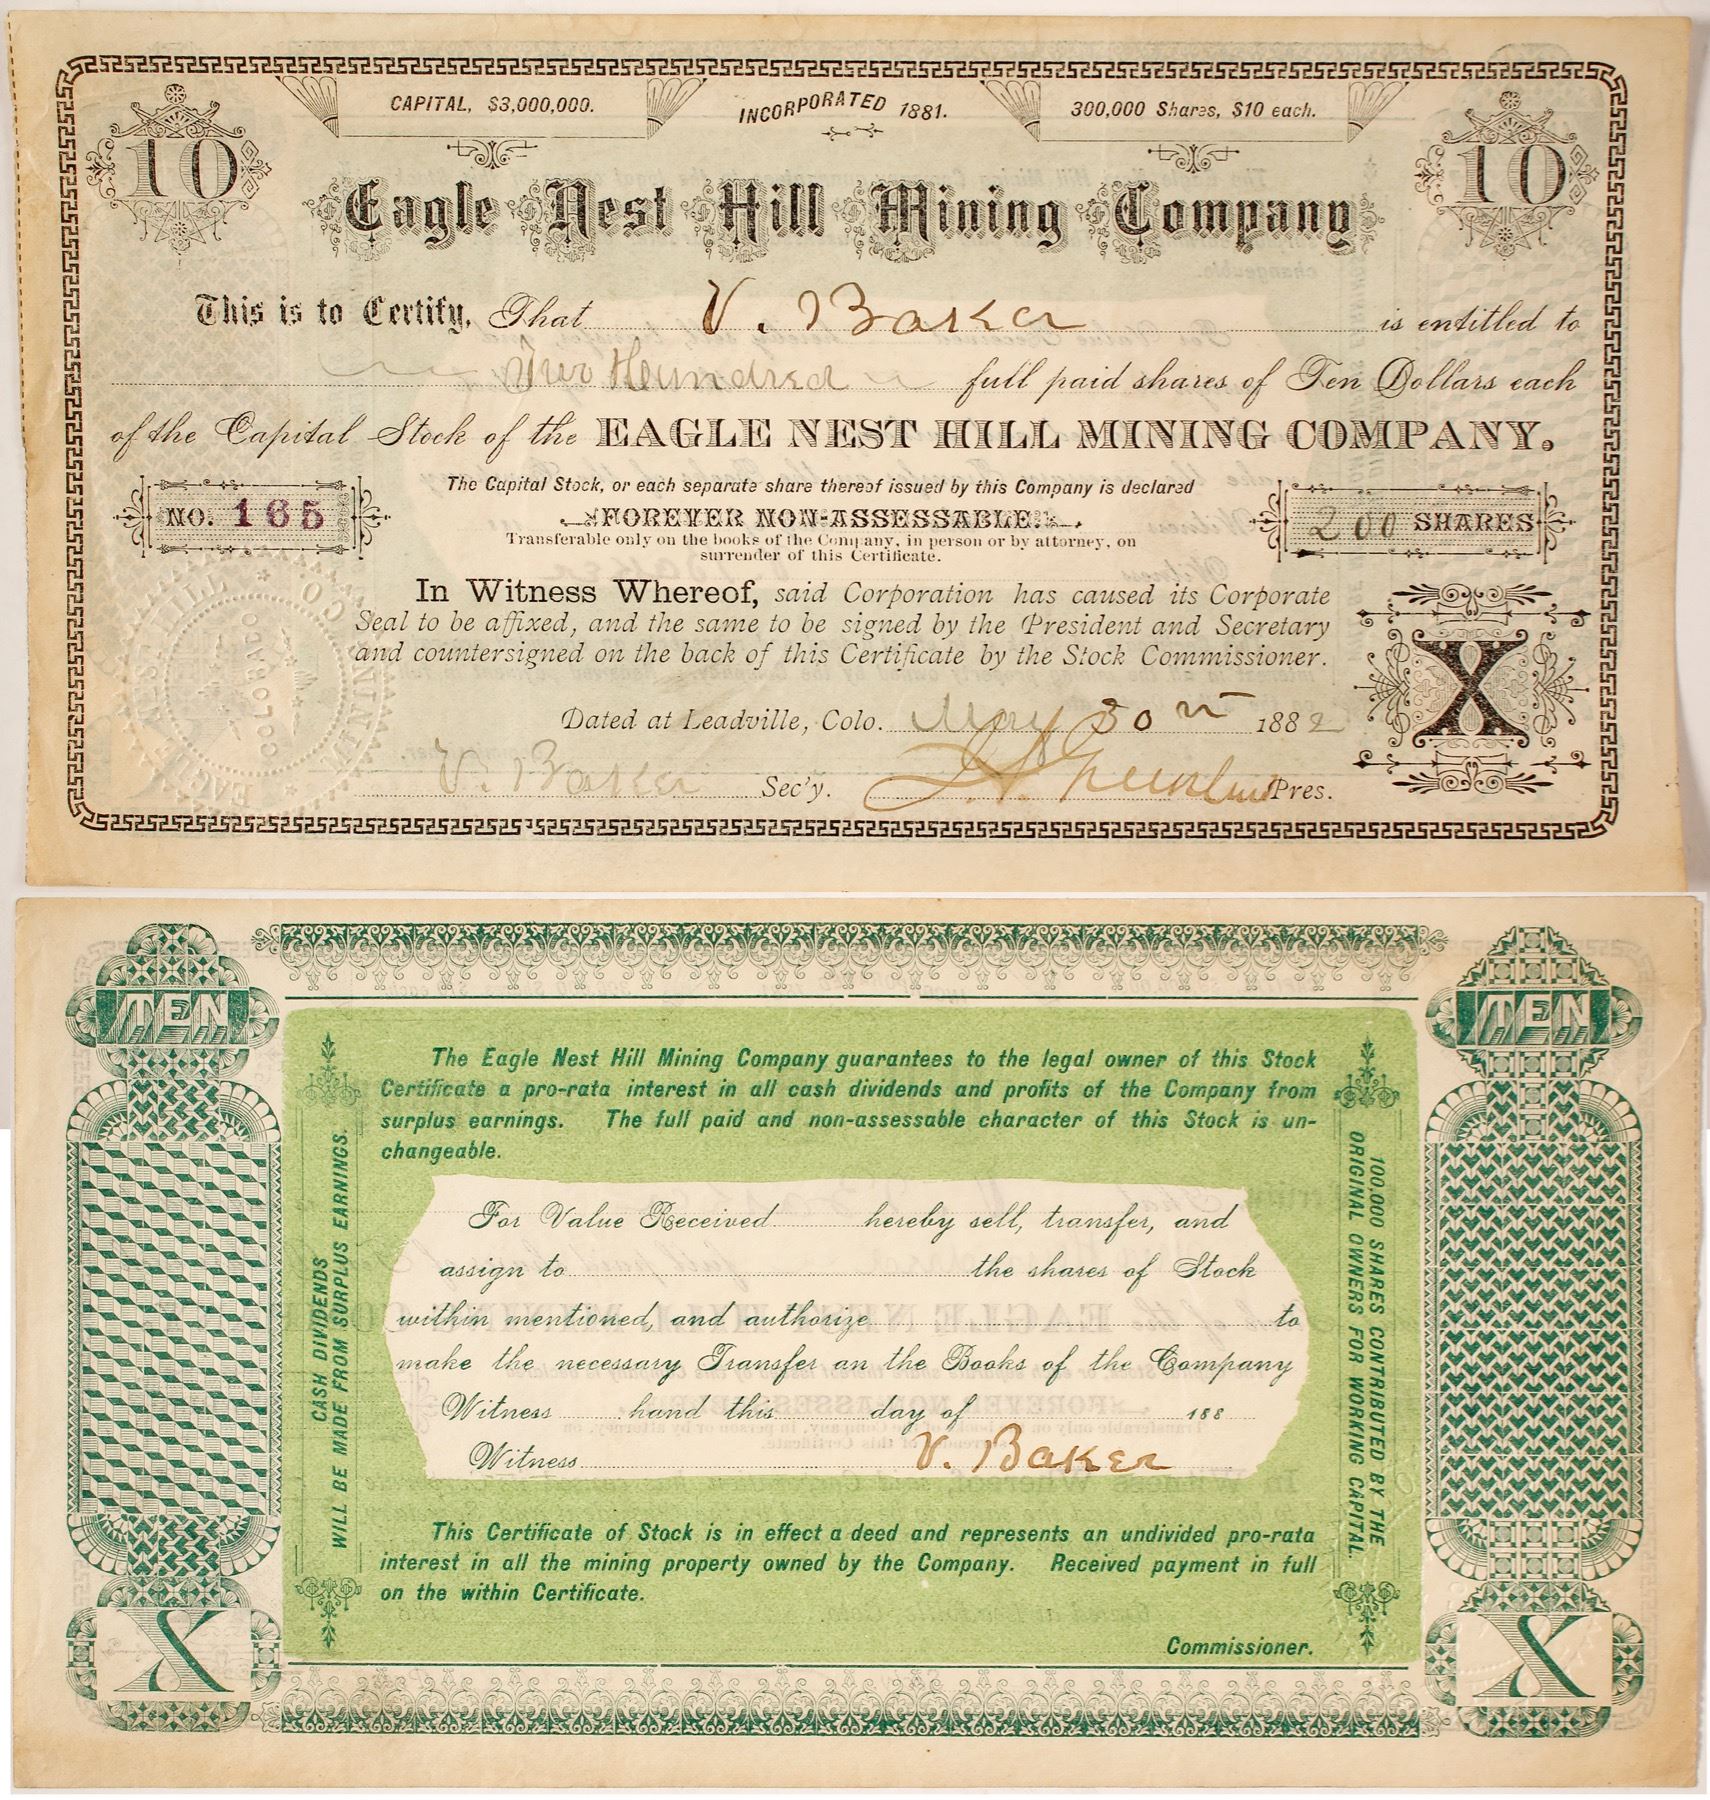 CAPITAL, $3,000,000. INCORPORATED 1881. 300,000 Shares, $10 each.
10 10
Eagle Nest Hill Mining Company
This is to Certify, That V. Baker is entitled to
Two Hundred full paid shares of Ten Dollars each
of the Capital Stock of the EAGLE NEST HILL MINING COMPANY.
The Capital Stock, or each separate share thereof issued by this Company is declared
NO. 165 FOREVER NON-ASSESSABLE. 200 SHARES
Transferable only on the books of the Company, in person or by attorney, on
surrender of this Certificate.
In Witness Whereof, said Corporation has caused its Corporate
Seal to be affixed, and the same to be signed by the President and Secretary
and countersigned on the back of this Certificate by the Stock Commissioner.
X
EAGLE NEST HILL MINING CO.
COLORADO
Dated at Leadville, Colo. May 30th 1882
V. Baker Sec'y. Pres.
TEN TEN
The Eagle Nest Hill Mining Company guarantees to the legal owner of this Stock
Certificate a pro-rata interest in all cash dividends and profits of the Company from
surplus earnings. The full paid and non-assessable character of this Stock is un-
changeable.
CASH DIVIDENDS
WILL BE MADE FROM SURPLUS EARNINGS.
For Value Received hereby sell, transfer, and
assign to the shares of Stock
within mentioned, and authorize to
make the necessary Transfer on the Books of the Company
Witness hand this day of 188
Witness V. Baker
100,000 SHARES CONTRIBUTED BY THE
ORIGINAL OWNERS FOR WORKING CAPITAL.
This Certificate of Stock is in effect a deed and represents an undivided pro-rata
interest in all the mining property owned by the Company. Received payment in full
on the within Certificate.
Commissioner.
X X